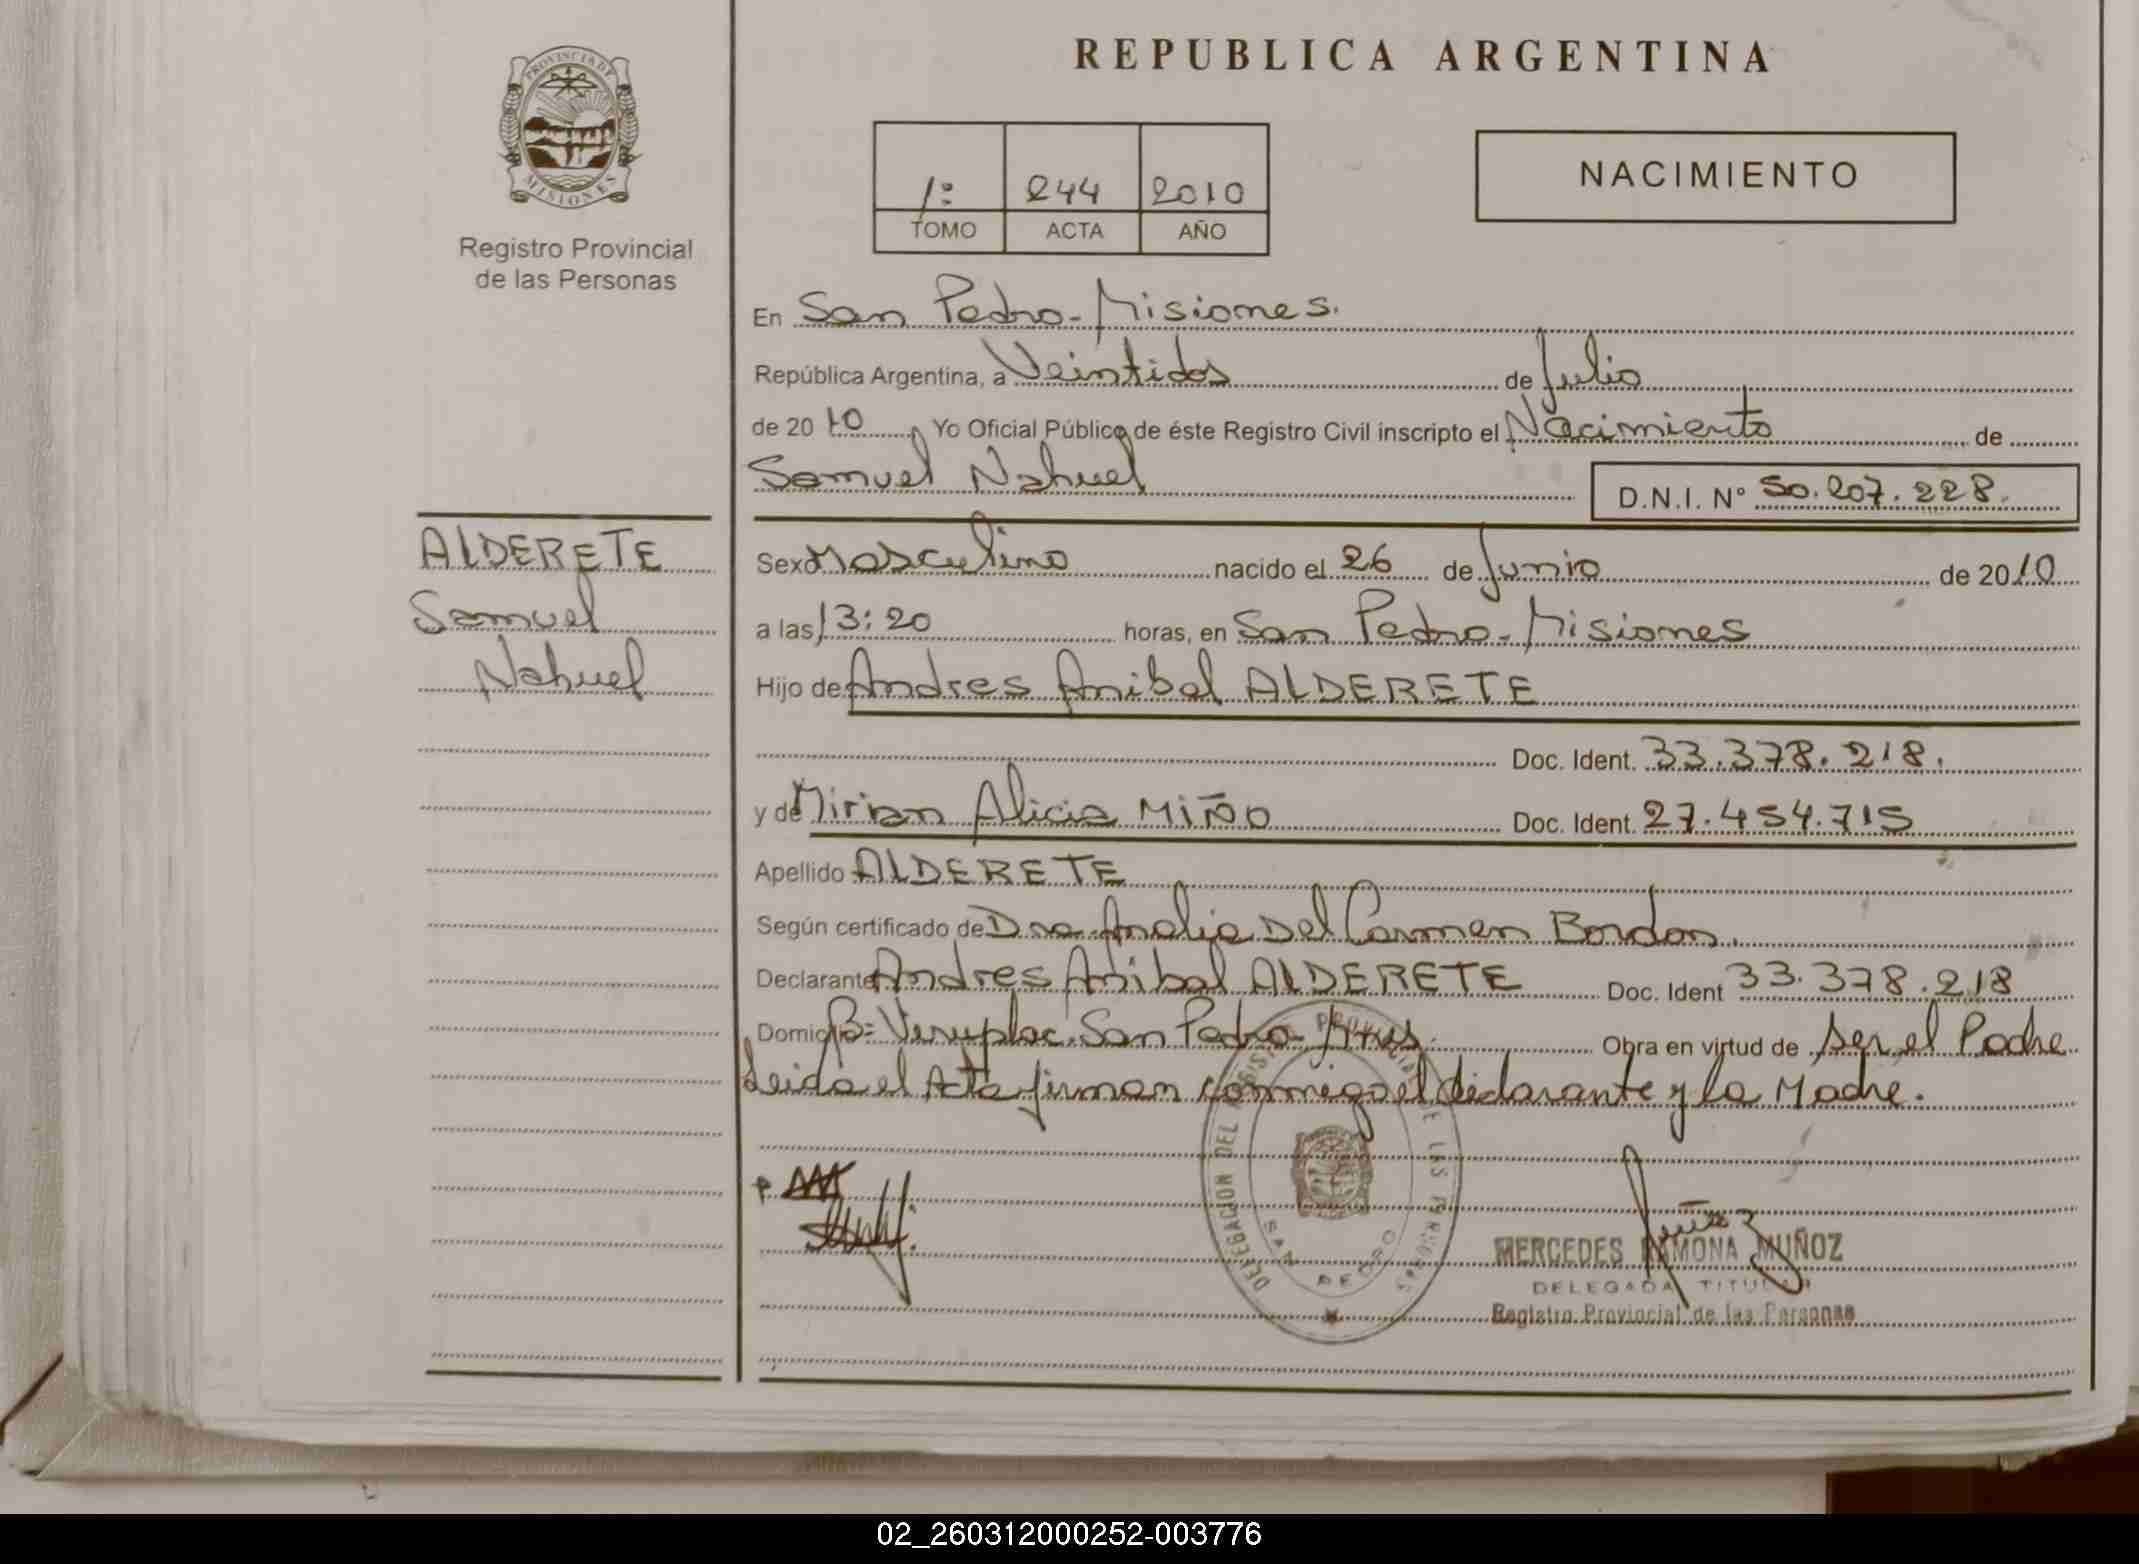 REPUBLICA ARGENTINA
PROVINCIA DE
MISIONES
Registro Provincial
de las Personas
1º 244 2010
TOMO ACTA AÑO
NACIMIENTO
En San Pedro-Misiones.
República Argentina, a Veintidos de Julio
de 20 10 Yo Oficial Público de éste Registro Civil inscripto el Nacimiento de
Samuel Nahuel D.N.I. Nº 50.207.228.
ALDERETE
Samuel
Nahuel
Sexo Masculino nacido el 26 de Junio de 2010
a las 13:20 horas, en San Pedro-Misiones
Hijo de Andres Anibal ALDERETE
Doc. Ident. 33.378.218.
y de Mirian Alicia MIÑO Doc. Ident. 27.454.715
Apellido ALDERETE
Según certificado de Dra Analia Del Carmen Bordon.
Declarante Andres Anibal ALDERETE Doc. Ident 33.378.218
Domicilio Bº San Pedro Obra en virtud de Ser el Padre
Leida el Acta firman conmigo el declarante y la Madre.
DELEGACION DEL REGISTRO PROVINCIAL DE LAS PERSONAS
SAN PEDRO
MERCEDES RAMONA MUÑOZ
DELEGADA TITULAR
Registro Provincial de las Personas
02_260312000252-003776